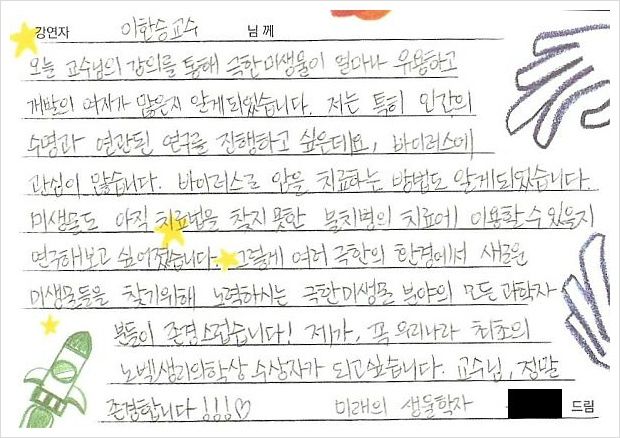 강연자 이한승교수 님 께
오늘 교수님의 강의를 통해 극한미생물이 얼마나 유용하고
개발의 여지가 많은지 알게되었습니다. 저는 특히 인간의
수명과 연관된 연구를 진행하고 싶은데요, 바이러스에
관심이 많습니다. 바이러스로 암을 치료하는 방법도 알게되었습니다.
미생물도 아직 치료법을 찾지 못한 불치병의 치료에 이용할 수 있을지
연구해보고 싶어졌습니다. 그렇게 여러 극한의 환경에서 새로운
미생물들을 찾기위해 노력하시는 극한미생물 분야의 모든 과학자
분들이 존경스럽습니다! 제가, 꼭 우리나라 최초의
노벨생리의학상 수상자가 되고싶습니다. 교수님, 정말
존경합니다!!!♡ 미래의 생물학자 드림